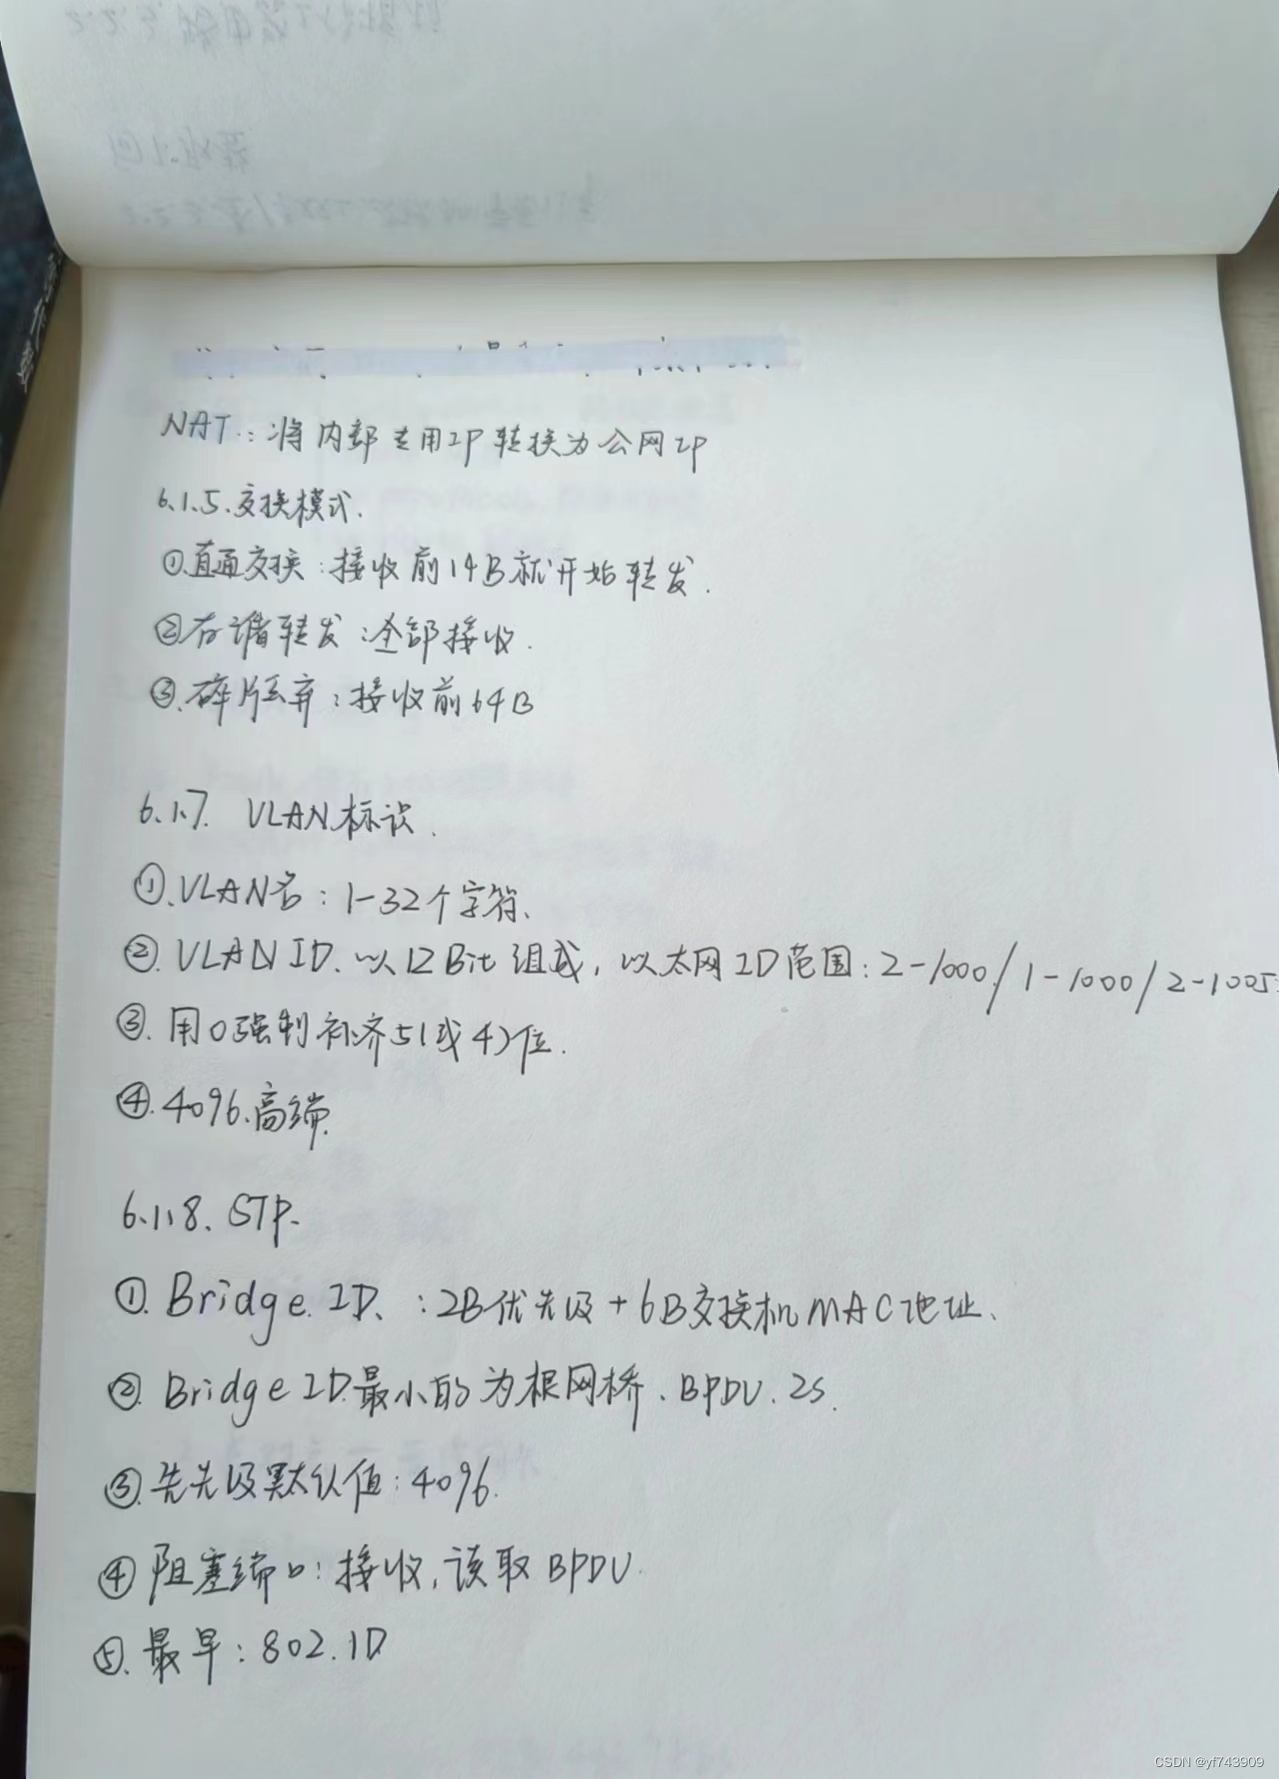 NAT.: 将内部专用IP转换为公网IP
6.1.5.交换模式.
①.直通交换:接收前14B就开始转发.
②存储转发:全部接收.
③.碎片丢弃:接收前64B
6.1.7. VLAN标识.
①.VLAN名:1-32个字符.
②. VLAN ID.以12Bit组成,以太网ID范围:2-1000/1-1000/2-1005
③.用0强制补齐51或47位.
④.4096.高端.
6.1.8. STP.
①. Bridge ID.:2B优先级+6B交换机MAC地址.
②. Bridge ID最小的为根网桥.BPDU.2S.
③.先先级默认值:4096.
④阻塞端口:接收,读取BPDU.
⑤.最早:802.1D
CSDN @yf743909